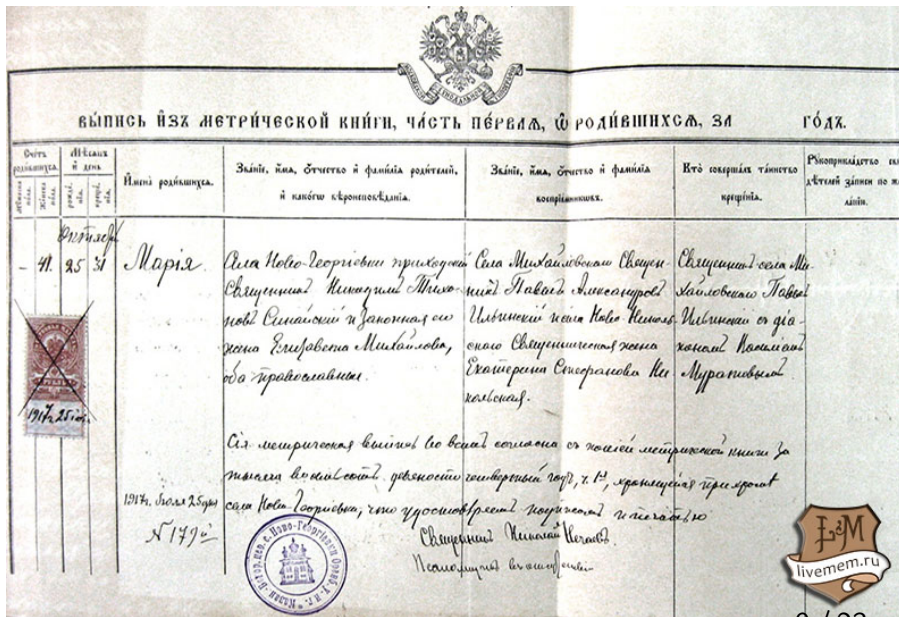 ВЫ́ПИСЬ И҆ЗЪ МЕТРИ́ЧЕСКОЙ КНИ́ГИ, ЧА́СТЬ ПЕ́РВАѦ, Ѡ҆ РОДИ́ВШИХСѦ, ЗА ГО́ДЪ.
Счетъ родившихся.
Мѣсяцъ и день
Имена родившихся.
Званіе, имя, отчество и фамилія родителей,
и какогѡ вѣроисповѣданія.
Званіе, имя, отчество и фамилія
воспріемниковъ.
Кто совершалъ таинство
крещенія.
Рукоприкладство
дѣтелей записи по
Октябрь
- 41. 25 31 Марія.
Села Ново-Георгіевки приходскій
Священникъ Никодимъ Тихо-
новъ Синайскій и законная его
жена Елизавета Михайлова,
оба православные.
Села Михайловскаго Священ-
никъ Павелъ Александровъ
Ильинскій и села Ново-Николь-
скаго Священническая жена
Екатерина Стефанова Ни-
кольская.
Священникъ села Ми-
хайловскаго Павелъ
Ильинскій съ діа-
кономъ
Муратовымъ
1917 25
Сія метрическая выпись во всемъ согласна съ метрической книги за
тысяча восемьсотъ девяносто четвертый годъ, ч. 1я, хранящейся при храмѣ
1917г. Іюля 25 дня
села Ново-Георгіевки, что удостовѣряемъ подписомъ и печатью
№ 179й
Священникъ Николай Нечаевъ.
Псаломщикъ
L&M
livemem.ru